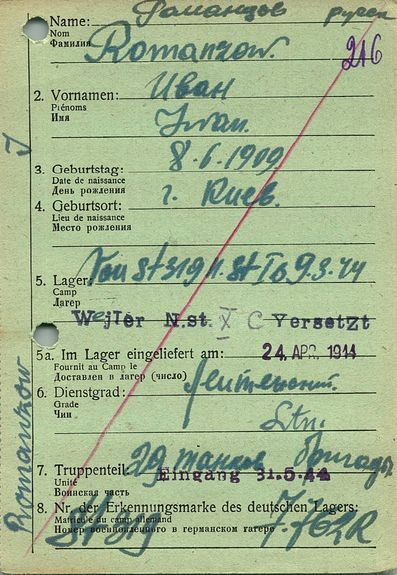 1. Name: Романцов русск
Nom
Фамилия Romanzow. 216
2. Vornamen: Иван
Prénoms
Имя Iwan.
3. Geburtstag: 8.6.1909.
Date de naissance
День рождения
4. Geburtsort: г. Киев.
Lieu de naissance
Место рождения
5. Lager: Von
Camp
Лагер
Wejler N.st. X C Versetzt
5a. Im Lager eingeliefert am: 24. APR. 1944
Fournit au Camp le
Доставлен в лагер (число)
6. Dienstgrad:
Grade
Чин Ltn.
7. Truppenteil: 29 танков. бригады
Unité Eingang 31.5.44
Воинская часть
8. Nr. der Erkennungsmarke des deutschen Lagers:
Matricole au camp allemand
Номер военнопленного в германском лагере
Romanzow
J